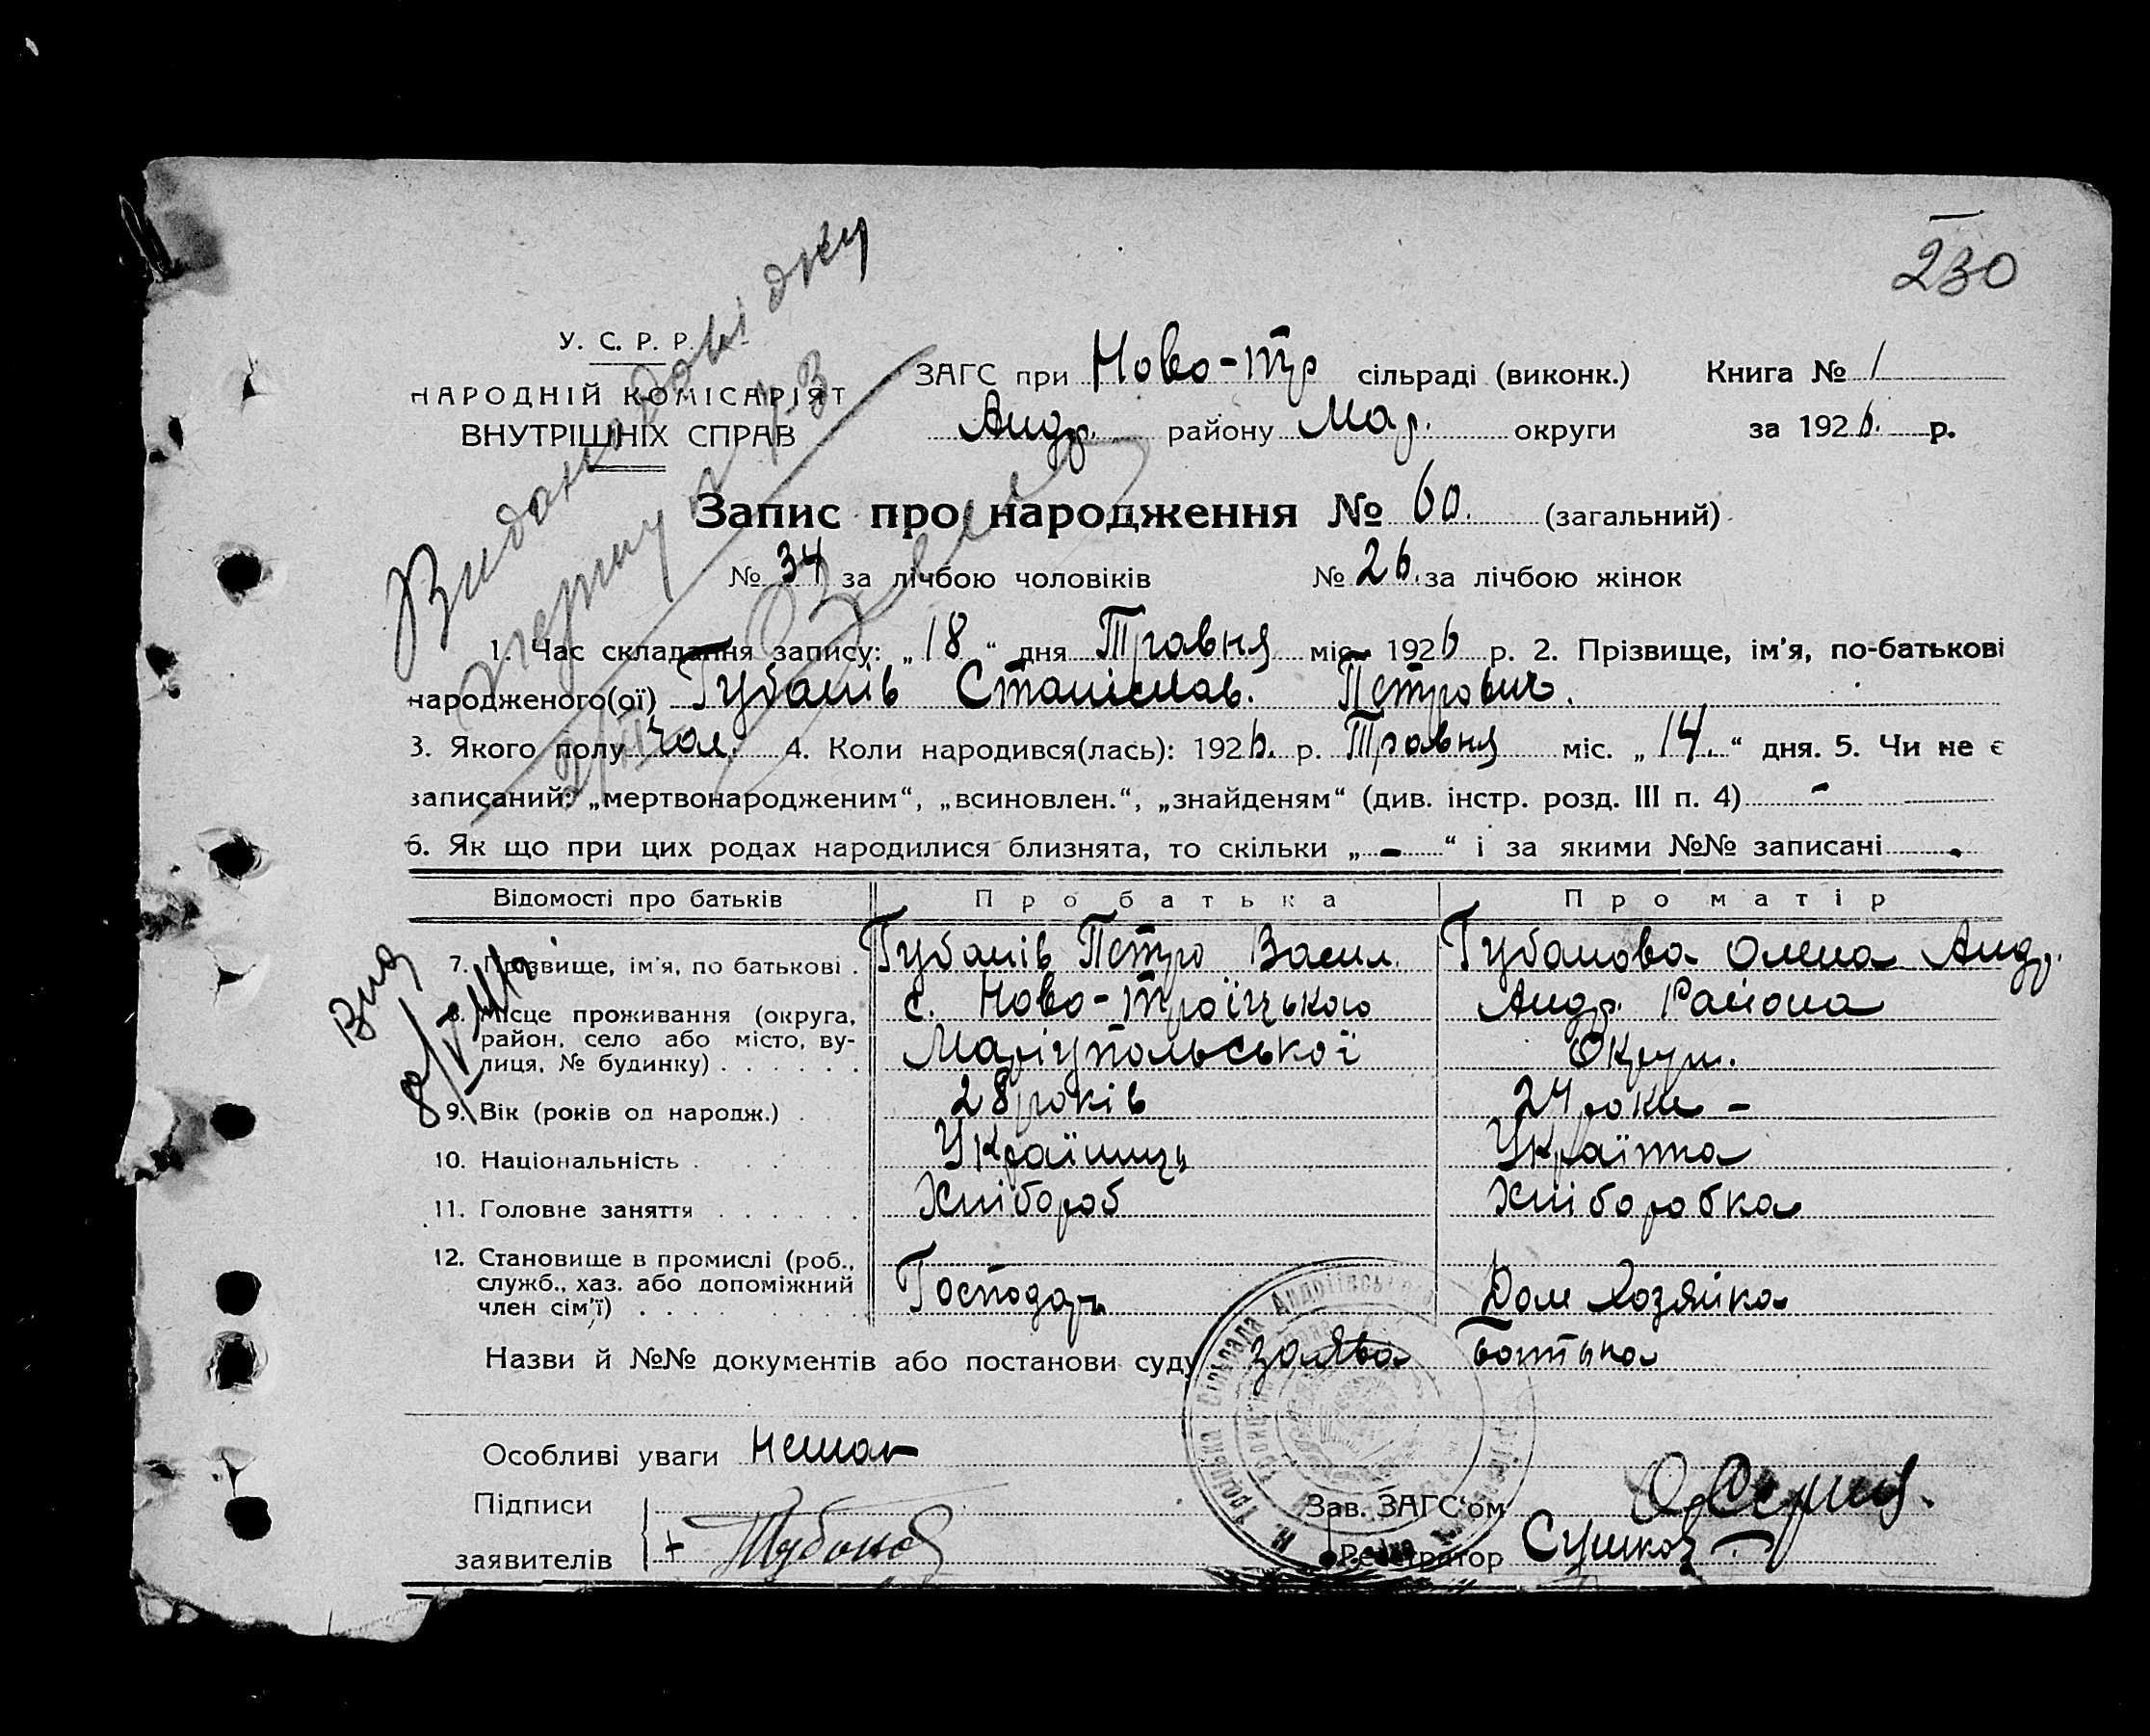 230
У. С. Р. Р.
НАРОДНІЙ КОМІСАРІЯТ
ВНУТРІШНІХ СПРАВ
ЗАГС при Ново-Тр сільраді (виконк.) Книга № 1
Андр. району Мар. округи за 1926. р.
Видана довідку
Запис про народження № 60. (загальний)
№ 34 за лічбою чоловіків № 26. за лічбою жінок
1. Час складання запису: „18“ дня Травня міс. 1926 р. 2. Прізвище, ім'я, по-батькові
народженого(ої) Губанів Станіслав. Петрович.
3. Якого полу чол. 4. Коли народився(лась): 1926. р. Травня міс. „14.“ дня. 5. Чи не є
записаний: „мертвонародженим“, „всиновлен.“, „знайденям“ (див. інстр. розд. III п. 4) -
6. Як що при цих родах народилися близнята, то скільки „-“ і за якими №№ записані
Відомості про батьків Про батька Про матір
7. Прізвище, ім'я, по батькові . Губанів Петро Васил. Губанова Олена Андр.
8. Місце проживання (округа, с. Ново-Троїцького Андр. Района
район, село або місто, ву-
лиця, № будинку) . . . . . . Маріупольської Округи.
9. Вік (років од народж.) . 28 років 24 роки -
10. Національність . . . . Українець Українка
11. Головне заняття . . . . . . Хлібороб Хліборобка
12. Становище в промислі (роб.,
служб., хаз. або допоміжний
член сім'ї) . . . . Господарь Дом Хозяйка
Назви й №№ документів або постанови суду заява батька
Особливі уваги Немає
Підписи Зав. ЗАГС'ом
заявителів + Губанов Реєстратор Сушков